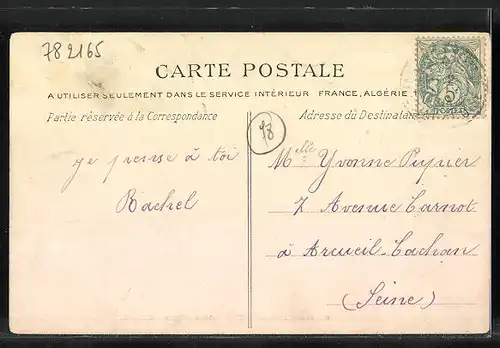 78 2165
CARTE POSTALE
A UTILISER SEULEMENT DANS LE SERVICE INTÉRIEUR FRANCE, ALGÉRIE
Partie réservée à la Correspondance
Adresse du Destinataire
78
je pense à toi
Rachel
Melle Yvonne Pupier
7 Avenue Carnot
à Arcueil-Cachan
(Seine)
5c